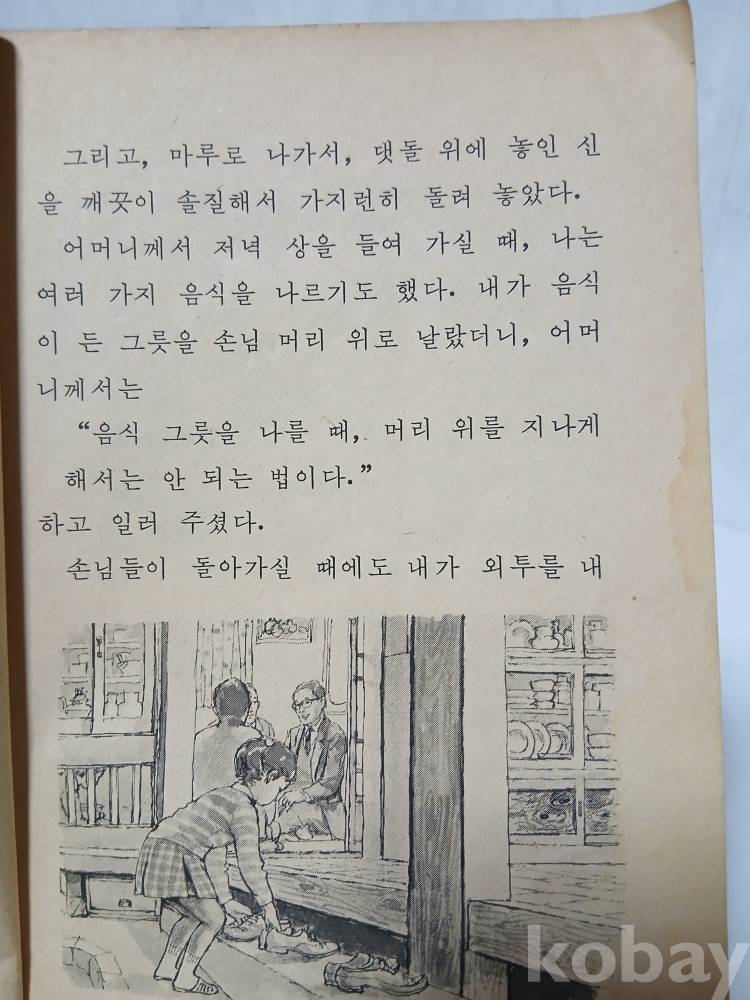 그리고, 마루로 나가서, 댓돌 위에 놓인 신
을 깨끗이 솔질해서 가지런히 돌려 놓았다.
어머니께서 저녁 상을 들여 가실 때, 나는
여러 가지 음식을 나르기도 했다. 내가 음식
이 든 그릇을 손님 머리 위로 날랐더니, 어머
니께서는
“음식 그릇을 나를 때, 머리 위를 지나게
해서는 안 되는 법이다.”
하고 일러 주셨다.
손님들이 돌아가실 때에도 내가 외투를 내
kobay